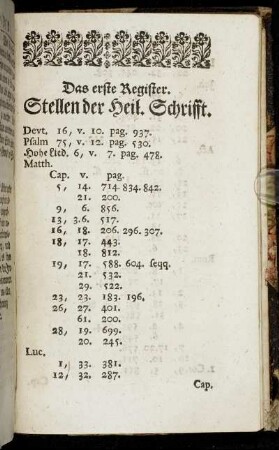 Das erste Register.
Stellen der Heil. Schrifft.
Devt. 16, v. 10. pag. 937.
Psalm 75, v. 12. pag. 530.
Hohe Lied. 6, v. 7. pag. 478.
Matth.
Cap. v. pag.
5, 14. 714. 834. 842.
21. 200.
9, 6. 856.
13, 3.6. 517.
16, 18. 206. 296. 307.
18, 17. 443.
18. 812.
19, 17. 588. 604. seqq.
21. 532.
29. 522.
23, 23. 183. 196.
26, 27. 401.
61. 200.
28, 19. 699.
20. 245.
Luc.
1, 33. 381.
12, 32. 287.
Cap.